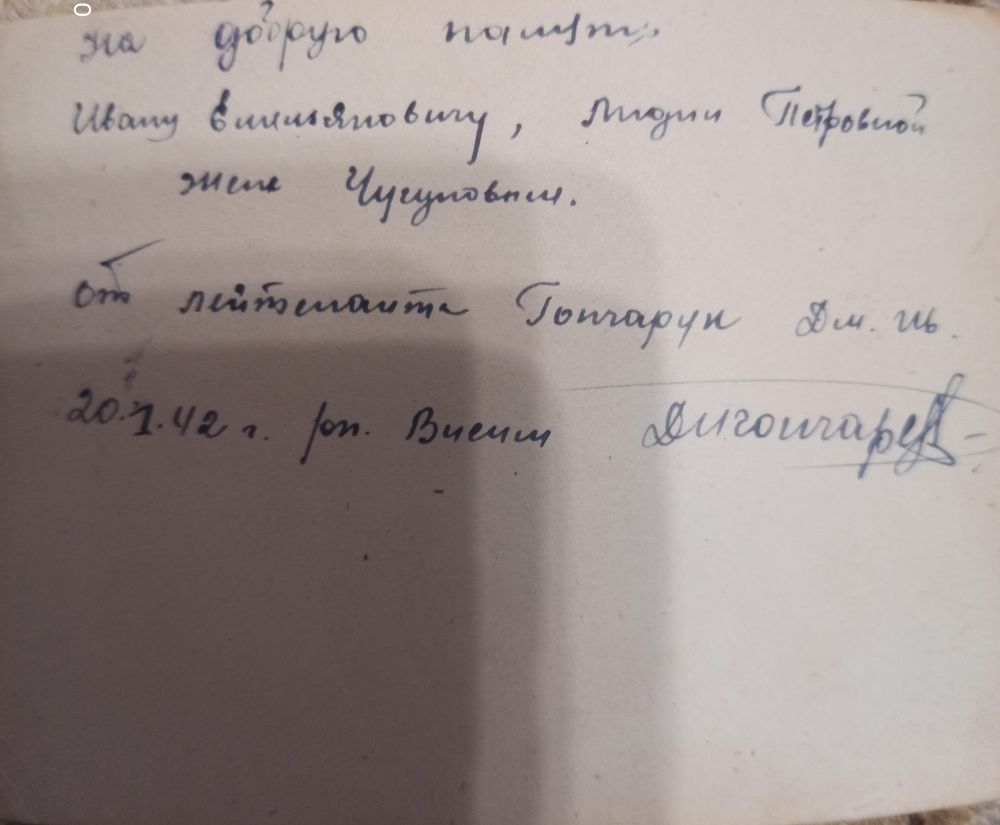 на добрую память
Ивану Емельяновичу, Лидии Петровной
жене Чугуновым.
От лейтенанта Гончарук Дм. Ив.
20.1.42 г. рп. Висим